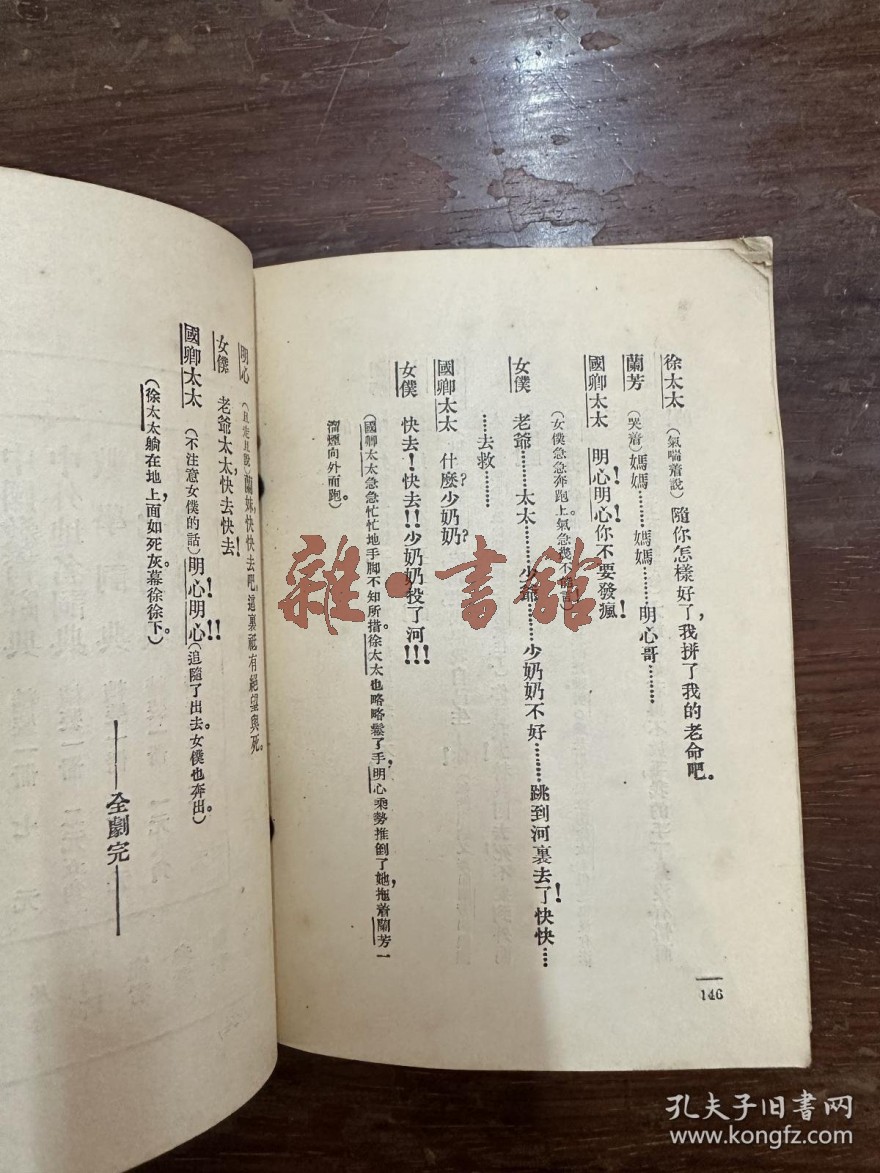 徐太太　（氣喘着說）隨你怎樣好了，我拼了我的老命吧。
蘭芳　（哭着）媽媽……媽媽………明心哥………
國卿太太　明心！明心！你不要發瘋！
（女僕急急奔跑上氣急幾不能言）
女僕　老爺………太太………少爺………少奶奶不好………跳到河裏去了！快快……
……去救………
國卿太太　什麼？少奶奶？
女僕　快去！快去！！少奶奶投了河！！！
（國卿太太急急忙忙地手脚不知所措。徐太太也略略鬆了手，明心乘勢推倒了她，拖着蘭芳一
溜煙向外而跑。）
146
明心　（且走且說）蘭妹，快快去吧，這裏祇有絕望與死。
女僕　老爺太太，快去快去！
國卿太太　（不注意女僕的話）明心！明心！！（追隨了出去。女僕也奔出）
（徐太太躺在地上，面如死灰。幕徐徐下。）
——全劇完——
雜·書館
孔夫子旧书网
www.kongfz.com